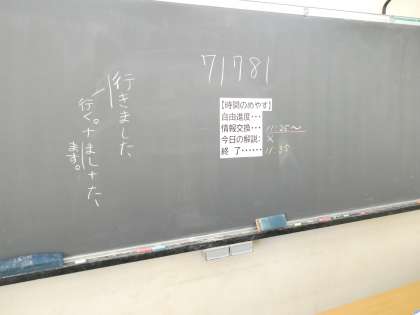 71781
行きました、
行く。+ました+た、
ます。
【時間のめやす】
自由進度・・・
情報交換・・・ 11:25〜
今日の解説: ×
終 了・・・・・・ 11:35